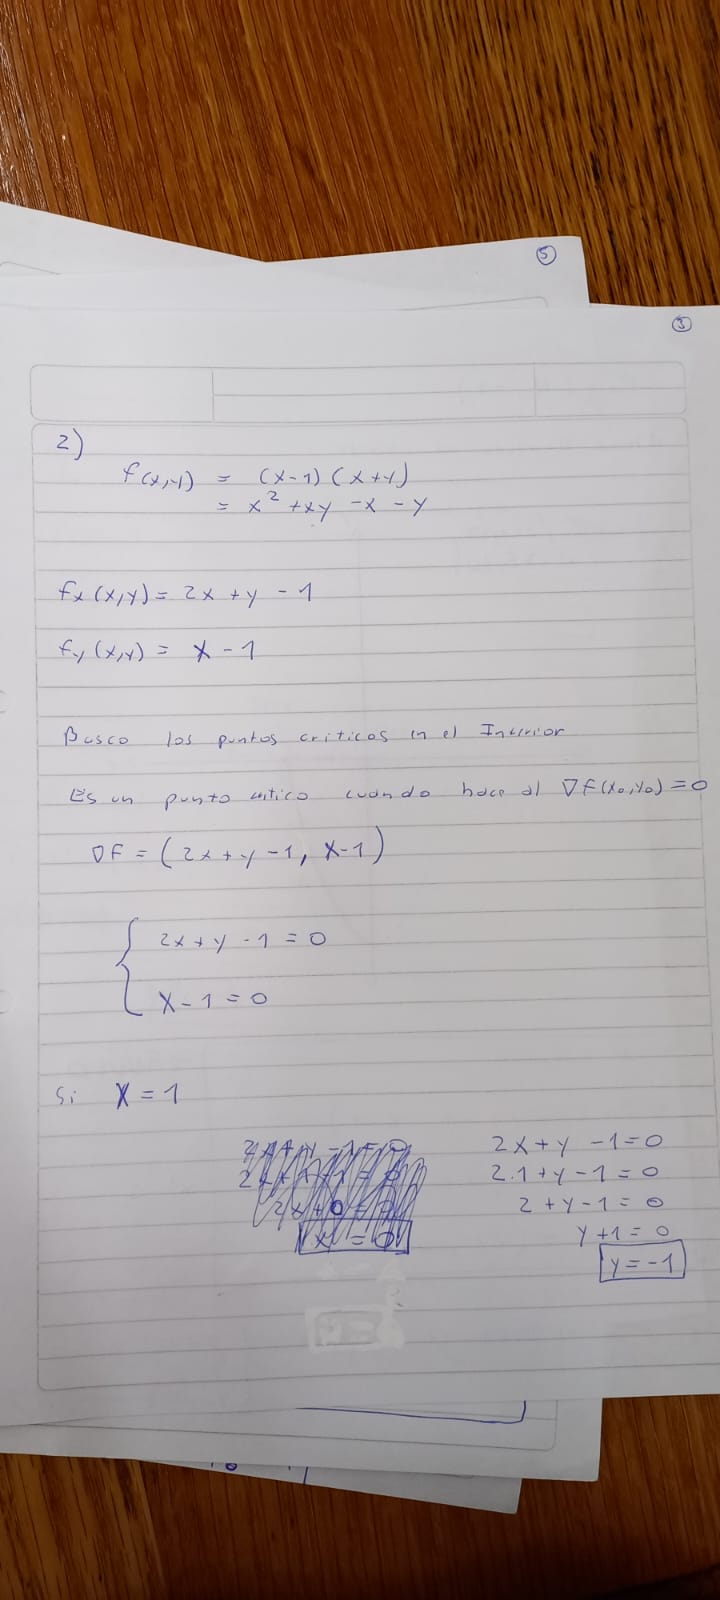 5
3
2)
f(x,y) = (x-1)(x+y)
= x² +xy -x -y
fx(x,y)= 2x +y -1
fy(x,y)= x-1
Busco los puntos criticos en el Interior
Es un punto critico cuando hace al ∇f(x₀,y₀)=0
∇F = (2x+y-1, x-1)
2x+y-1=0
x-1=0
Si x=1
2x+y-1=0
2.1+y-1=0
2+y-1=0
y+1=0
y=-1